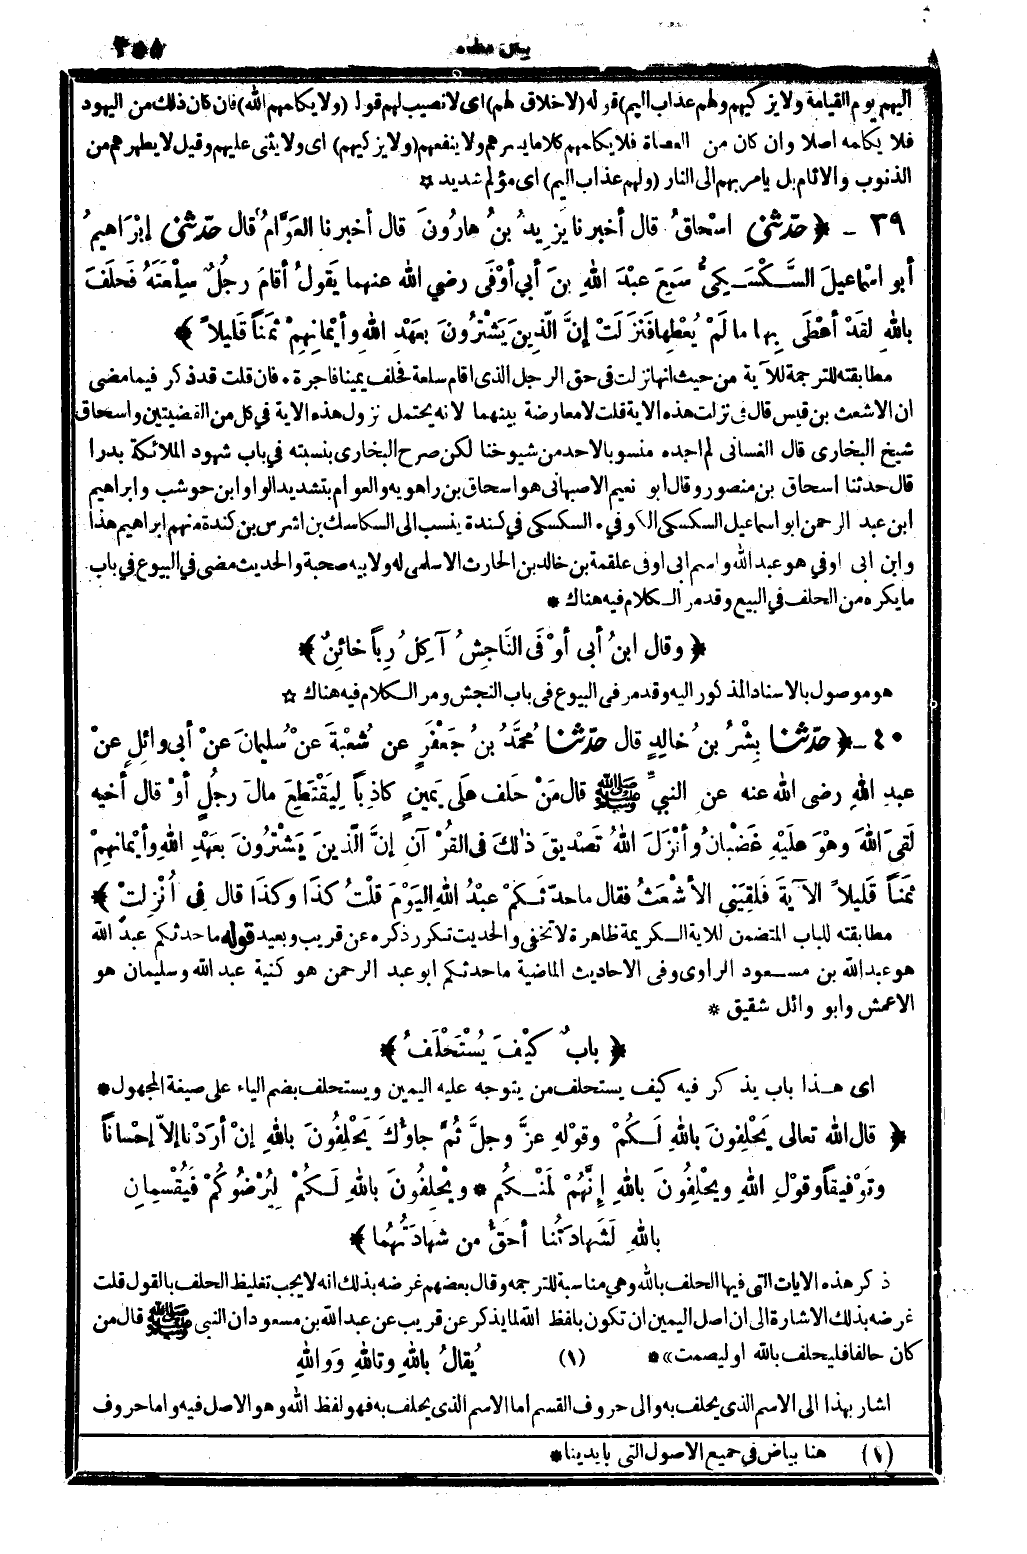 ٢٥٥
اليهم يوم القيامة ولا يزكيهم ولهم عذاب اليم) قوله (لا خلاق لهم) اى لا نصيب لهم قوله (ولا يكلمهم الله) فان كان ذلك من اليهود
فلا يكلمه اصلا وان كان من العصاة فلا يكلمهم كلاما يسرهم ولا ينفعهم (ولا يزكيهم) اى ولا يثنى عليهم وقيل لا يطهرهم من
الذنوب والآثام بل يامر بهم الى النار (ولهم عذاب اليم) اى مؤلم شديد ☆
٣٩ - ﴿ حَدّثني اسْحاقُ قال أخبرنا يَزِيدُ بنُ هارُونَ قال أخبرنا العَوَّامُ قال حَدّثني إبْرَاهِيمُ
أبو اسْماعِيلَ السَّكْسَـكِيُّ سَمِعَ عبْدَ اللهِ بنَ أبي أوْفَى رضي الله عنهما يَقولُ أقامَ رجُلٌ سِلْعَتَهُ فَحلَفَ
باللهِ لقَدْ أعْطَى بِها ما لَمْ يُعْطِها فنَزَلَتْ إنَّ الّذِينَ يَشْتَرُونَ بعَهْدِ اللهِ وأيْمانِهِمْ ثمَناً قَلِيلاً ﴾
مطابقته للترجمة للآية من حيث انها نزلت فى حق الرجل الذى اقام سلعة فحلف يمينا فاجرة * فان قلت قد ذكر فيما مضى
ان الاشعث بن قيس قال في نزلت هذه الاية قلت لا معارضة بينهما لانه يحتمل نزول هذه الاية في كل من القضيتين واسحاق
شيخ البخارى قال الغسانى لم اجده منسوبا لاحد من شيوخنا لكن صرح البخارى بنسبته في باب شهود الملائكة بدرا
قال حدثنا اسحاق بن منصور وقال أبو نعيم الاصبهانى هو اسحاق بن راهويه والعوام بتشديد الواو ابن حوشب وابراهيم
ابن عبد الرحمن ابو اسماعيل السكسكى الكوفي * السكسكى في كندة ينسب الى السكاسك بن اشرس بن كندة منهم ابراهيم هذا
وابن ابى اوفي هو عبد الله واسم ابى اوفى علقمة بن خالد بن الحارث الاسلمى له ولابيه صحبة والحديث مضى في البيوع في باب
ما يكره من الحلف في البيع وقد مر الـكلام فيه هناك *
﴿ وقال ابنُ أبى أوْفَى النَّاجِشُ آكِلُ رِباً خائِنٌ ﴾
هو موصول بالاسناد المذكور اليه وقد مر فى البيوع فى باب النجش ومر الـكلام فيه هناك ☆
٤٠ - ﴿ حدّثنا بِشْرُ بنُ خالِدٍ قال حدّثنا مُحمَّدُ بنُ جَعْفَرٍ عن شُعْبَةَ عنْ سُليمانَ عنْ أبى وائِلٍ عنْ
عبدِ اللهِ رضى الله عنه عنِ النبيِّ ﷺ قال مَنْ حَلف علَى يَمِينٍ كاذِباً لِيَقْتَطِعَ مالَ رجُلٍ أوْ قال أخيهِ
لَقِىَ اللهَ وهْوَ علَيْهِ غَضْبانُ وأنْزَلَ اللهُ تَصْدِيقَ ذلكَ فى القُرْآنِ إنَّ الّذِينَ يَشْتَرُونَ بعَهْدِ اللهِ وأيْمانِهِمْ
ثمَناً قَلِيلاً الآيَةَ فَلَقِيَنِى الأشْعَثُ فقال ما حدّثَـكمْ عبْدُ اللهِ اليَوْمَ قلْتُ كذَا وكَذَا قال فِى أُنْزِلتْ ﴾
مطابقته للباب المتضمن للاية الـكريمة ظاهرة لا تخفى والحديث تـكرر ذكره عن قريب وبعيد قوله ما حدثكم عبد الله
هو عبد الله بن مسـعود الراوى وفى الاحاديث الماضية ما حدثكم ابو عبد الرحمن هو كنية عبد الله وسليمان هو
الاعمش وابو وائل شقيق *
﴿ بابٌ كَيْفَ يُسْتَحْلَفُ ﴾
اى هـذا باب يذكر فيه كيف يستحلف من يتوجه عليه اليمين ويستحلف بضم الياء على صيغة المجهول *
﴿ قال اللهُ تعالى يَحْلِفونَ باللهِ لَـكُمْ وقوْلهِ عزَّ وجلَّ ثُمَّ جاؤُكَ يَحْلِفُونَ باللهِ إنْ أرَدْنا إلاّ إحْساناً
وتَوْفيقاً وقوْلِ اللهِ ويحْلِفُونَ باللهِ إنَّهُمْ لَمنْـكُم * ويحْلِفُونَ باللهِ لَـكُمْ لِيُرْضُوكُمْ فَيُقْسِمانِ
باللهِ لَشَهادَتُنا أحَقُّ من شَهادَتِهُما ﴾
ذكر هذه الايات التى فيها الحلف بالله وهى مناسبة للترجمه وقال بعضهم غرضه بذلك انه لا يجب تغليظ الحلف بالقول قلت
غرضه بذلك الاشارة الى ان اصل اليمين ان تكون بلفظ الله لما يذكر عن قريب عن عبد الله بن مسعود ان النبى ﷺ قال من
كان حالفا فليحلف بالله او ليصمت» * (١) يُقالُ باللهِ وتاللهِ وَواللهِ
اشار بهذا الى الاسم الذى يحلف به والى حروف القسم اما الاسم الذى يحلف به فهو لفظ الله وهو الاصل فيه واما حروف
(١) هنا بياض في جميع الاصول التى بايدينا *